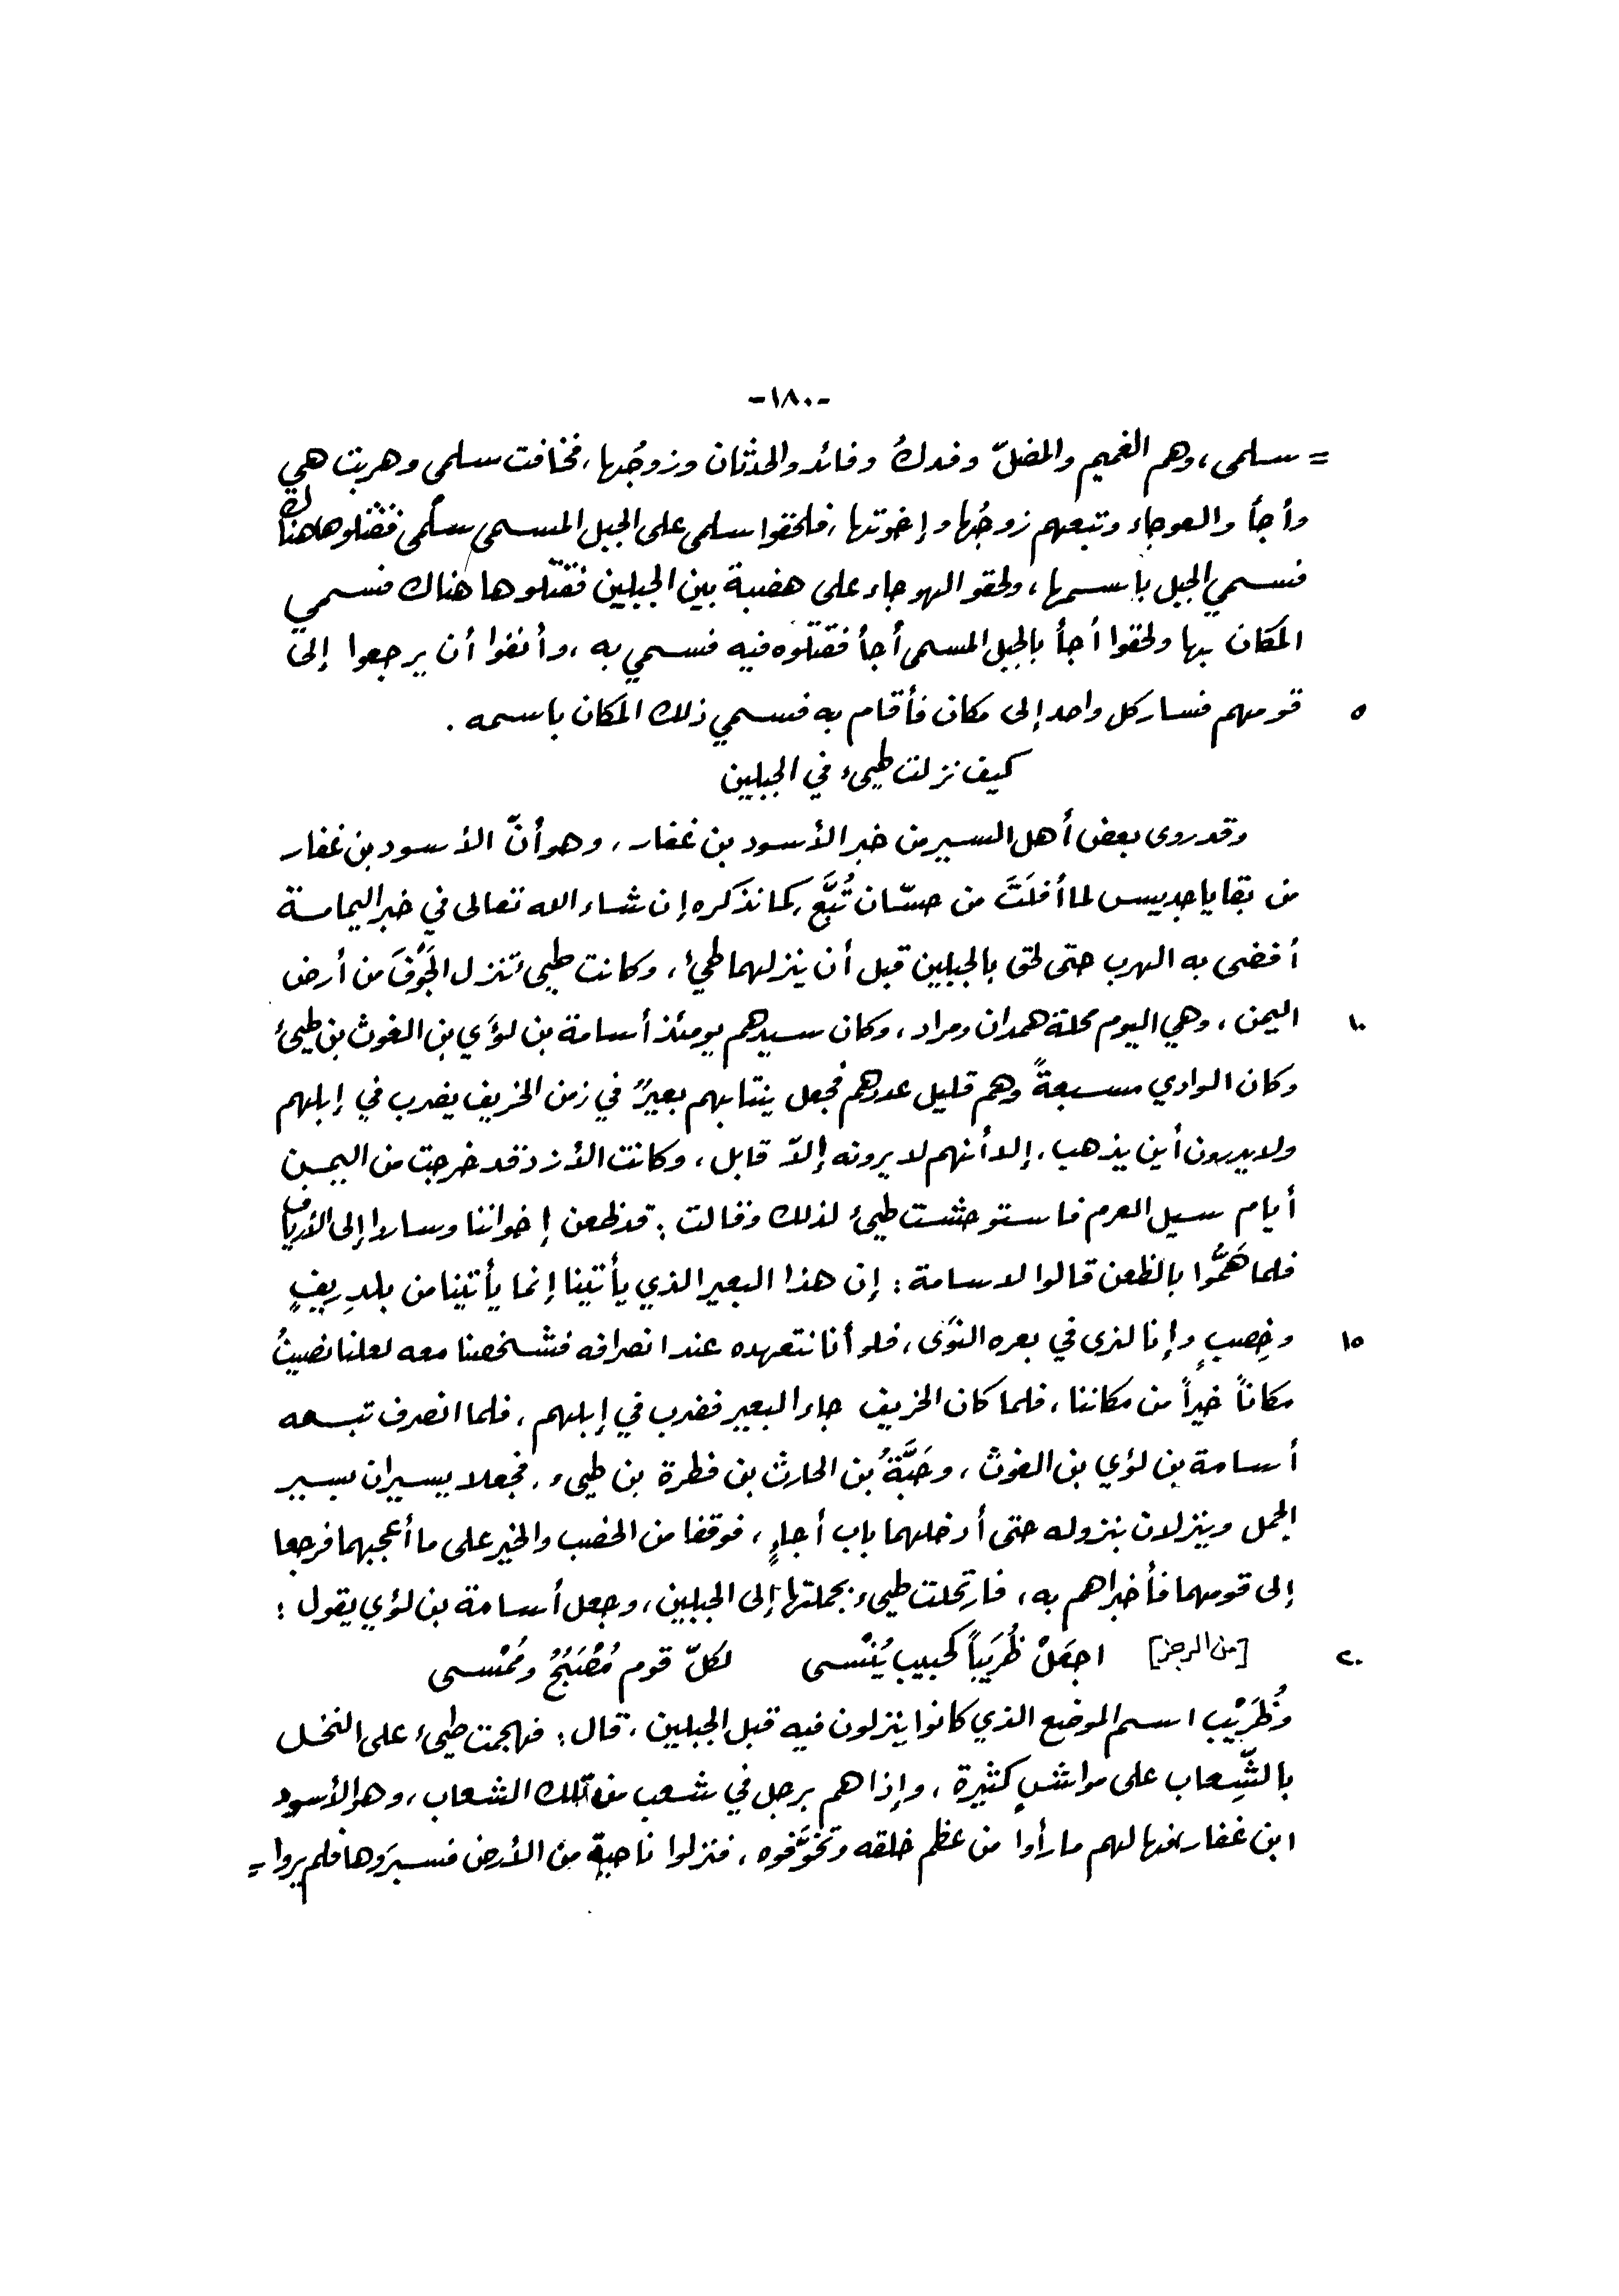 -١٨٠-
= سلمى، وهم الغميم والمضلّ وفدك وفائد والحدثان وزوجُها، فخافت سلمى وهربت هي
وأجأ والعوجاء وتبعهم زوجُها وإخوتها، فلحقوا سلمى على الجبل المسمى سلمى فقتلوها هناك
فسمي الجبل باسمها، ولحقو الهوجاء على هضبة بين الجبلين فقتلوها هناك فسمي
المكان بها ولحقوا أجأ بالجبل المسمى أجأ فقتلوه فيه فسمي به، وأنفوا أن يرجعوا إلى
٥ قومهم فسار كل واحد إلى مكان فأقام به فسمي ذلك المكان باسمه.
كيف نزلت طيىء في الجبلين
وقد روى بعض أهل السير من خبر الأسود بن غفار، وهو أنّ الأسود بن غفار
من بقايا جديس لما أفلَتَ من حسّان تُبَّع، كما نذكره إن شاء الله تعالى في خبر اليمامة
أفضى به الهرب حتى لحق بالجبلين قبل أن ينزلهما طيئ، وكانت طيئ تنزل الجَوْفَ من أرض
١٠ اليمن، وهي اليوم محلة همدان ومراد، وكان سيدهم يومئذ أسامة بن لؤي بن الغوث بن طيئ
وكان الوادي مسبعةً وهم قليل عددهم فجعل ينتابهم بعيرٌ في زمن الخريف يضرب في إبلهم
ولا يدرون أين يذهب، إلا أنهم لا يرونه إلاّ قابل، وكانت الأزد قد خرجت من اليمن
أيام سيل العرم فاستوحشت طيئ لذلك وقالت: قد ظعن إخواننا وساروا إلى الأرياف
فلما هَمُّوا بالظعن قالوا لاسامة: إن هذا البعير الذي يأتينا إنما يأتينا من بلدِ ريفٍ
١٥ وخِصبٍ وإنا لنرى في بعره النَوَى، فلو أنا نتعهده عند انصرافه فشخصنا معه لعلنا نصيبُ
مكاناً خيراً من مكاننا، فلما كان الخريف جاء البعير فضرب في إبلهم، فلما انصرف تبعه
أسامة بن لؤي بن الغوث، وحَبَّةُ بن الحارث بن فطرة بن طيىء، فجعلا يسيران بسير
الجمل وينزلان بنزوله حتى أدخلهما باب أجاءٍ، فوقفا من الخصب والخير على ما أعجبهما فرجعا
إلى قومهما فأخبراهم به، فارتحلت طيىء بجملتها إلى الجبلين، وجعل أسامة بن لؤي يقول:
٢٠ [من الرجز] اجعَلْ ظُرَيباً كحبيب يُنْسى لكلّ قوم مُصْبَحٌ ومُمْسى
وظُرَيْب اسم الموضع الذي كانوا ينزلون فيه قبل الجبلين، قال: فهجمت طيئ على النخل
بالشّعاب على مواشٍ كثيرة، وإذا هم برجل في شعب من تلك الشعاب، وهو الأسود
ابن غفار فهالهم ما رأوا من عظم خلقه وتخوَّفوه، فنزلوا ناحية من الأرض فسبرَوها فلم يروا =